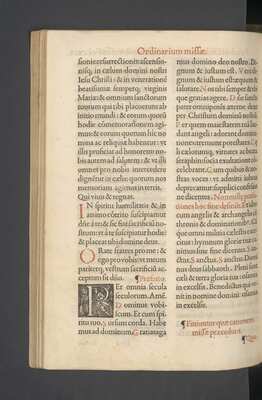 Ordinarium missæ.
sionis resurrectionis ascensio-
nisq; in cælum domini nostri
Iesu Christi: & in veneratione
beatissimæ semperq; virginis
Mariæ: & omnium sanctorum
tuorum qui tibi placuerunt ab
initio mundi: & eorum quorū
hodie commemoratio agi-
mus: & eorum quorum hic no
mina ac reliquiæ habentur: vt
illis proficiat ad honorem: no-
bis autem ad salutem: & vt illi
omnes pro nobis intercedere
dignētur in cælis: quorum nos
memoriam agimus in terris.
Qui vivis & regnas.
IN spiritu humilitatis & in
animo cōtrito suscipiamur
dn̄e à te: & sic fiat sacrificiū no-
strum: vt à te suscipiatur hodie:
& placeat tibi domine deus.
ORate fratres pro me: &
ego pro vobis: vt meum
pariterq; vestrum sacrificiū ac-
ceptum sit deo.
PEr omnia secula
seculorum. Amē.
Dominus vobi-
scum. Et cum spi-
ritu tuo. Sursum corda. Habe
mus ad dominum. Gratias aga
mus domino deo nostro. Di-
gnum & iustum est. Vere di-
gnum & iustum est: æquum &
salutare. Nos tibi semper & vbi
que gratias agere. Domine san-
cte: pater omnipotens æterne deus:
per Christum dominū nostrū.
Per quem maiestatem tuā lau-
dant angeli: adorant domina-
tiones: tremunt potestates. Cæ
li cælorumq; virtutes ac beata
seraphin: socia exultatione cō
celebrant. Cum quibus & no-
stras voces: vt admitti iubeas
deprecamur: supplici confessio
ne dicentes.
cum angelis & archangelis: cū
thronis & dominationibꝰ. Cū
que omni militia cælestis exer-
citus: hymnum gloriæ tuæ ca-
nimus: sine fine dicentes. San-
ctus. Sanctus. Sanctus. Domi-
nus deus sabbaoth. Pleni sunt
cæli & terra gloria tua: osanna
in excelsis. Benedictus qui ve-
nit in nomine domini: osanna
in excelsis.
¶Finiuntur quæ canonem
missæ præcedunt.